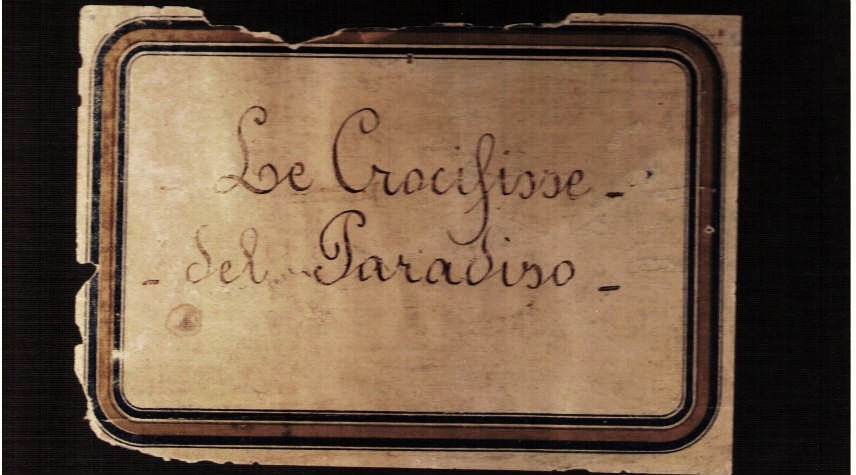 Le Crocifisse -
- del Paradiso -